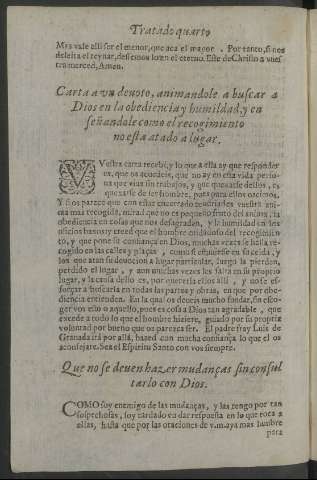 Tratado quarto
Mas vale alli ser el menor, que aca el mayor. Por tanto, si nos
deleita el reynar, desseemos lo en el eterno. Esse dè Christo a vues
tra merced, Amen.
Carta a vn deuoto, animandole a buscar a
Dios en la obediencia y humildad, y en
señandole como el recogimiento
no esta atado a lugar.
VUestra carta recebi, y lo que a ella ay que responder
es, que os acordeis, que no ay en esta vida perso-
na que viua sin trabajos, y que quexarse dellos, es
quexarse de ser hombre, pues para ellos nacimos.
Y si os parece que con estar encerrado tendriades vuestra ani-
ma mas recogida, mirad que no es pequeño fruto del anima, la
obediencia en cosas que nos desagraden, y la humildad en los
oficios baxos, y creed que el hombre cuidadoso del recogimien
to, y que pone su confiança en Dios, muchas vezes se halla re-
cogido en las calles y plaças, como si estuuiesse en su celda, y
los que atan su deuocion a lugar particular, luego la pierden,
perdido el lugar, y aun muchas vezes les falta en su proprio
lugar, y la causa dello es, por quererla ellos alli, y no se es-
forçar a buscarla en todas las partes y obras, en que por obe-
diencia entienden. En la qual os deueis mucho fundar, sin esco-
ger vos esto o aquello, pues es cosa a Dios tan agradable, que
excede a todo lo que el hombre hiziere, guiado por su propria
voluntad por bueno que os parezca ser. El padre fray Luis de
Granada irà por allà, hazed con mucha confiança lo que el os
aconsejare. Sea el Espiritu Santo con vos siempre.
Que no se deuen hazer mudanças sin consul
tarlo con Dios.
COMO soy enemigo de las mudanças, y las tengo por tan
sospechosas, soy tardado en dar respuesta en lo que toca a
ellas, hasta que por las oraciones de v.m. aya mas lumbre
para